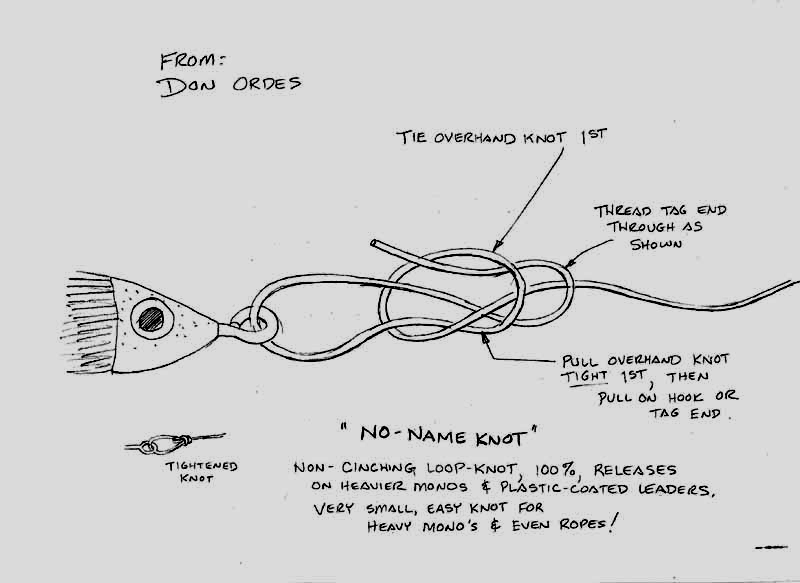 FROM:
DON ORDES
TIE OVERHAND KNOT 1ST
THREAD TAG END
THROUGH AS
SHOWN
PULL OVERHAND KNOT
TIGHT 1ST, THEN
PULL ON HOOK OR
TAG END.
TIGHTENED
KNOT
"NO-NAME KNOT"
NON-CINCHING LOOP-KNOT, 100%, RELEASES
ON HEAVIER MONOS & PLASTIC-COATED LEADERS.
VERY SMALL, EASY KNOT FOR
HEAVY MONO'S & EVEN ROPES!